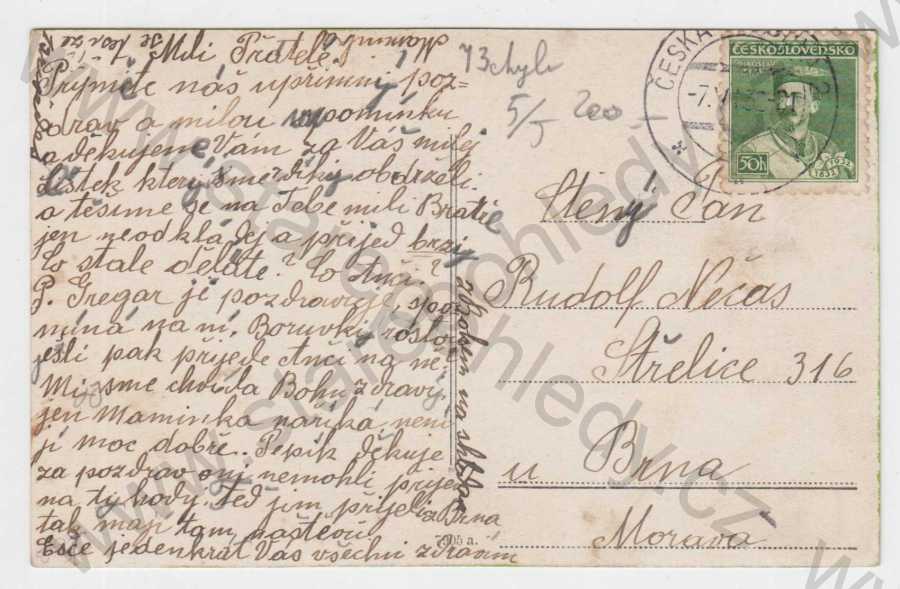 Milí Přátelé!
Prijměte náš upřímni poz=
drav a milou vzpomínku
a děkujeme Vám za Váš milej
lístek kteri sme obdrželi
a těsíme se na Tebe mili Bratře
jen neodkládej a přijed brzi
Co stale deláte? Co Anči?
P. Gregar ji pozdravuje. spo
míná na ní. Boruvki rostou
jestli pak přijede Anči na ně
Mi sme chvála Bohu zdraví
jen Maminka naříká není
jí moc dobre. Pepík děkuje
za pozdrav oni nemohli prijet
na ty hody. Ted jim přijeli
z Brna
tak maji tam naštevu
Esče jedenkrát Vás všechni zdravim
z Bohem na shledan
905 a.
73 chyb
5/5 200
ČESKÁ
-7.
ČESKOSLOVENSKO
MIROSLAV
50h
1832
1932
Stený Pan
Rudolf Nečas
Střelice 316
u Brna
Morava
www.starepohledy.cz